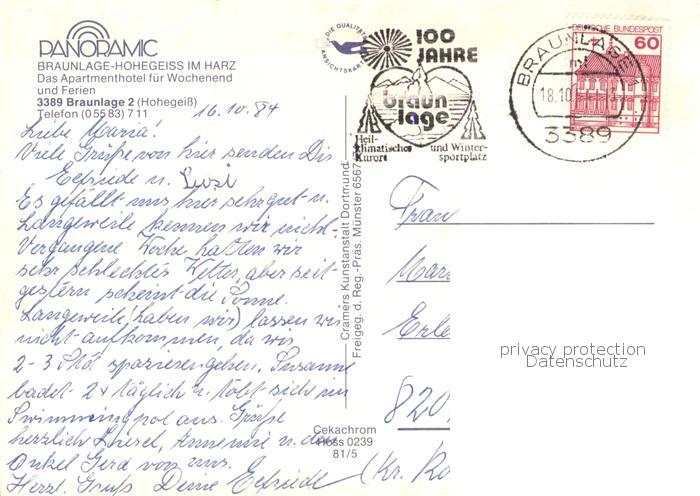 PANORAMIC
BRAUNLAGE-HOHEGEISS IM HARZ
Das Apartmenthotel für Wochenend
und Ferien
3389 Braunlage 2 (Hohegeiß)
Telefon (05583) 711
16.10.84
Liebe Maria!
Viele Grüße von hier senden Dir
Elfriede u. Susi
Es gefällt uns hier sehr gut u.
Langeweile kennen wir nicht.
Vergangene Woche hatten wir
sehr schlechtes Wetter, aber seit
gestern scheint die Sonne.
Langeweile (haben wir) lassen wir
nicht aufkommen, da wir
2-3 Std spazierengehen. Susanne
badet 2x täglich u. tobt sich im
Swimmingpol aus. Grüße
herzlich Liesel, Annemie u. den
Onkel Gerd von uns.
Herzl. Gruß Deine Elfriede
DIE QUALITÄTS
ANSICHTSKARTE
Cramers Kunstanstalt Dortmund
Freigeg. d. Reg.-Präs. Münster 6567
Cekachrom
Hoss 0239
81/5
100
JAHRE
braun
lage
Heil-
klimatischer
Kurort
und Winter-
sportplatz
BRAUNLAGE 1
mt
18.10
3389
DEUTSCHE BUNDESPOST
60
Frau
Mar
Erle
820
(Kr. Ro
privacy protection
Datenschutz